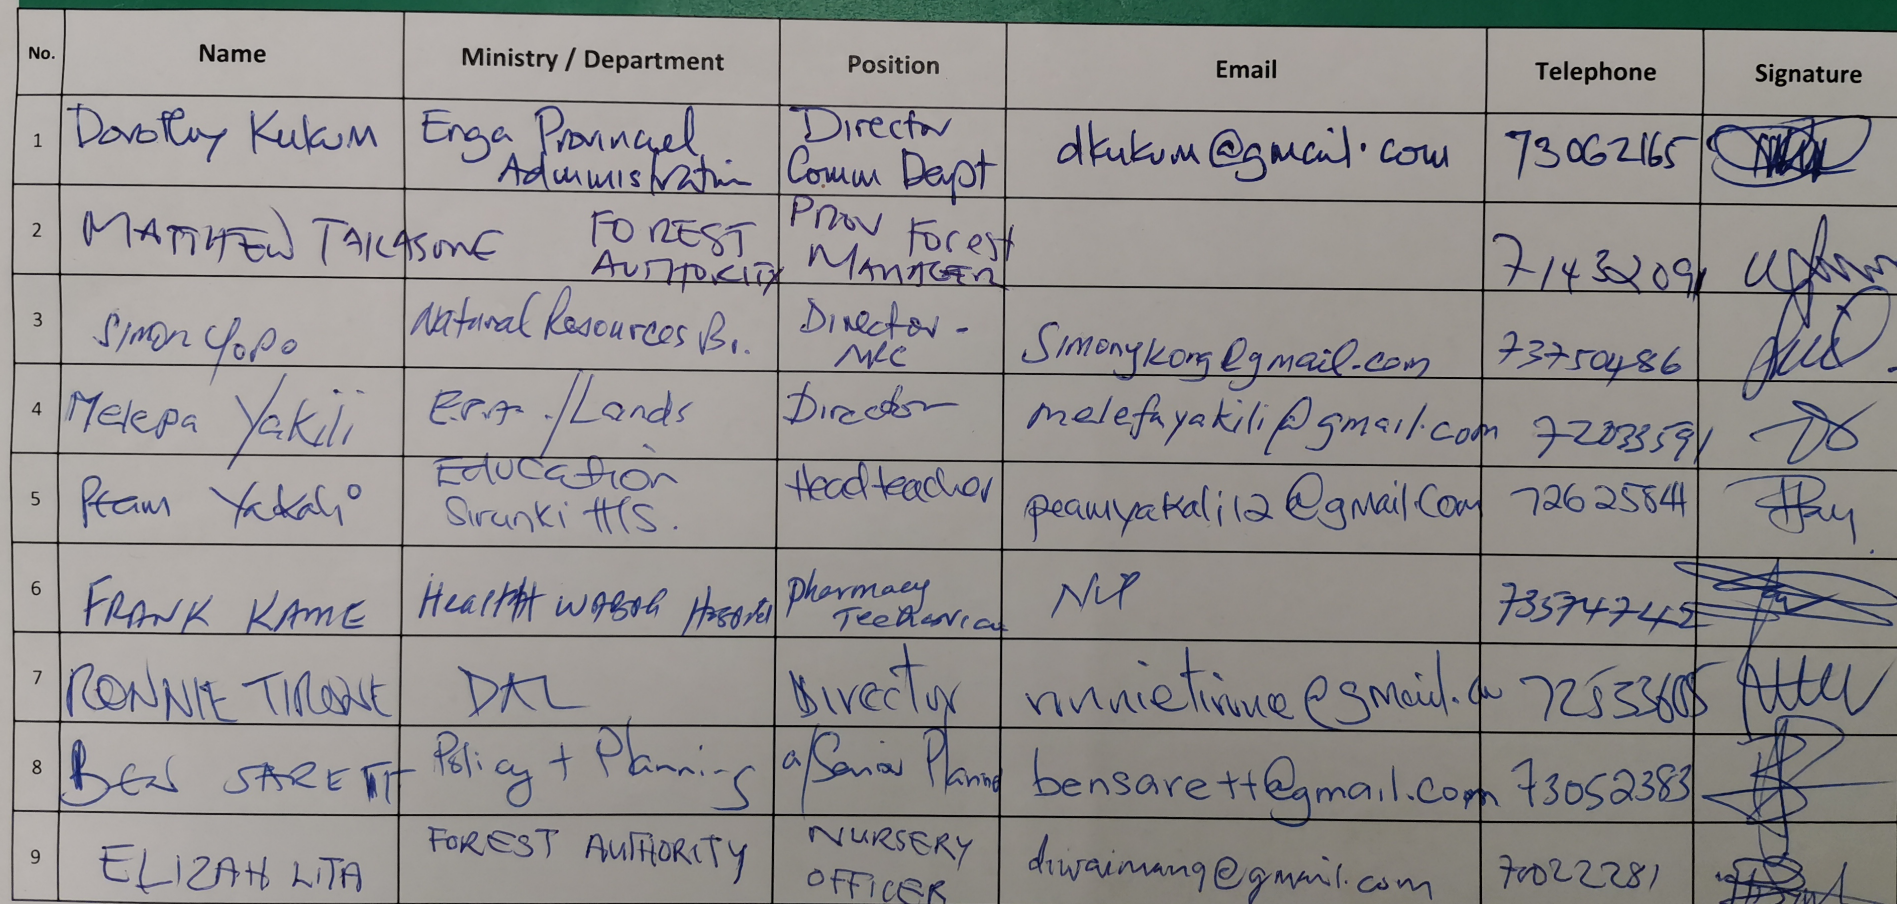 No. Name Ministry / Department Position Email Telephone Signature
1 Dorothy Kukum Enga Provincial Administration Director Comm Dept dkukum@gmail.com 73062165
2 MATTHEW TAKASONE FOREST AUTHORITY Prov Forest MANAGER 71432091
3 Simon Yopo Natural Resources Br. Director - NRC Simonykong@gmail.com 73750486
4 Melepa Yakili E.P.A. /Lands Director melepayakili@gmail.com 72033591
5 Peam Yakali Education Sirunki H/S. Headteacher peamyakali12@gmail.com 72625841
6 FRANK KAME Health WABAG Hospital Pharmacy Technician Nil 73574742
7 RONNIE TIRONE DAL Director 72533605
8 BEN SARETT Policy + Planning a/Senior Planner bensarett@gmail.com 73052383
9 ELIZAH LITA FOREST AUTHORITY NURSERY OFFICER diwaimang@gmail.com 70022281